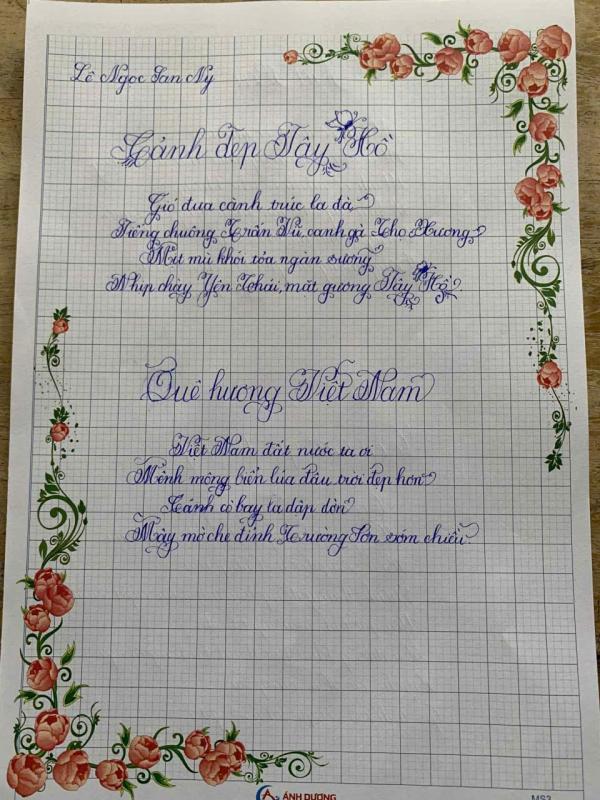 Lê Ngọc San Ny
Cảnh đẹp Tây Hồ
Gió đưa cành trúc la đà
Tiếng chuông Trấn Vũ, canh gà Thọ Xương
Mịt mù khói tỏa ngàn sương
Nhịp chày Yên Thái, mặt gương Tây Hồ.
Quê hương Việt Nam
Việt Nam đất nước ta ơi
Mênh mông biển lúa đâu trời đẹp hơn
Cánh cò bay lả dập dờn
Mây mờ che đỉnh Trường Sơn sớm chiều
ÁNH DƯƠNG
MS3